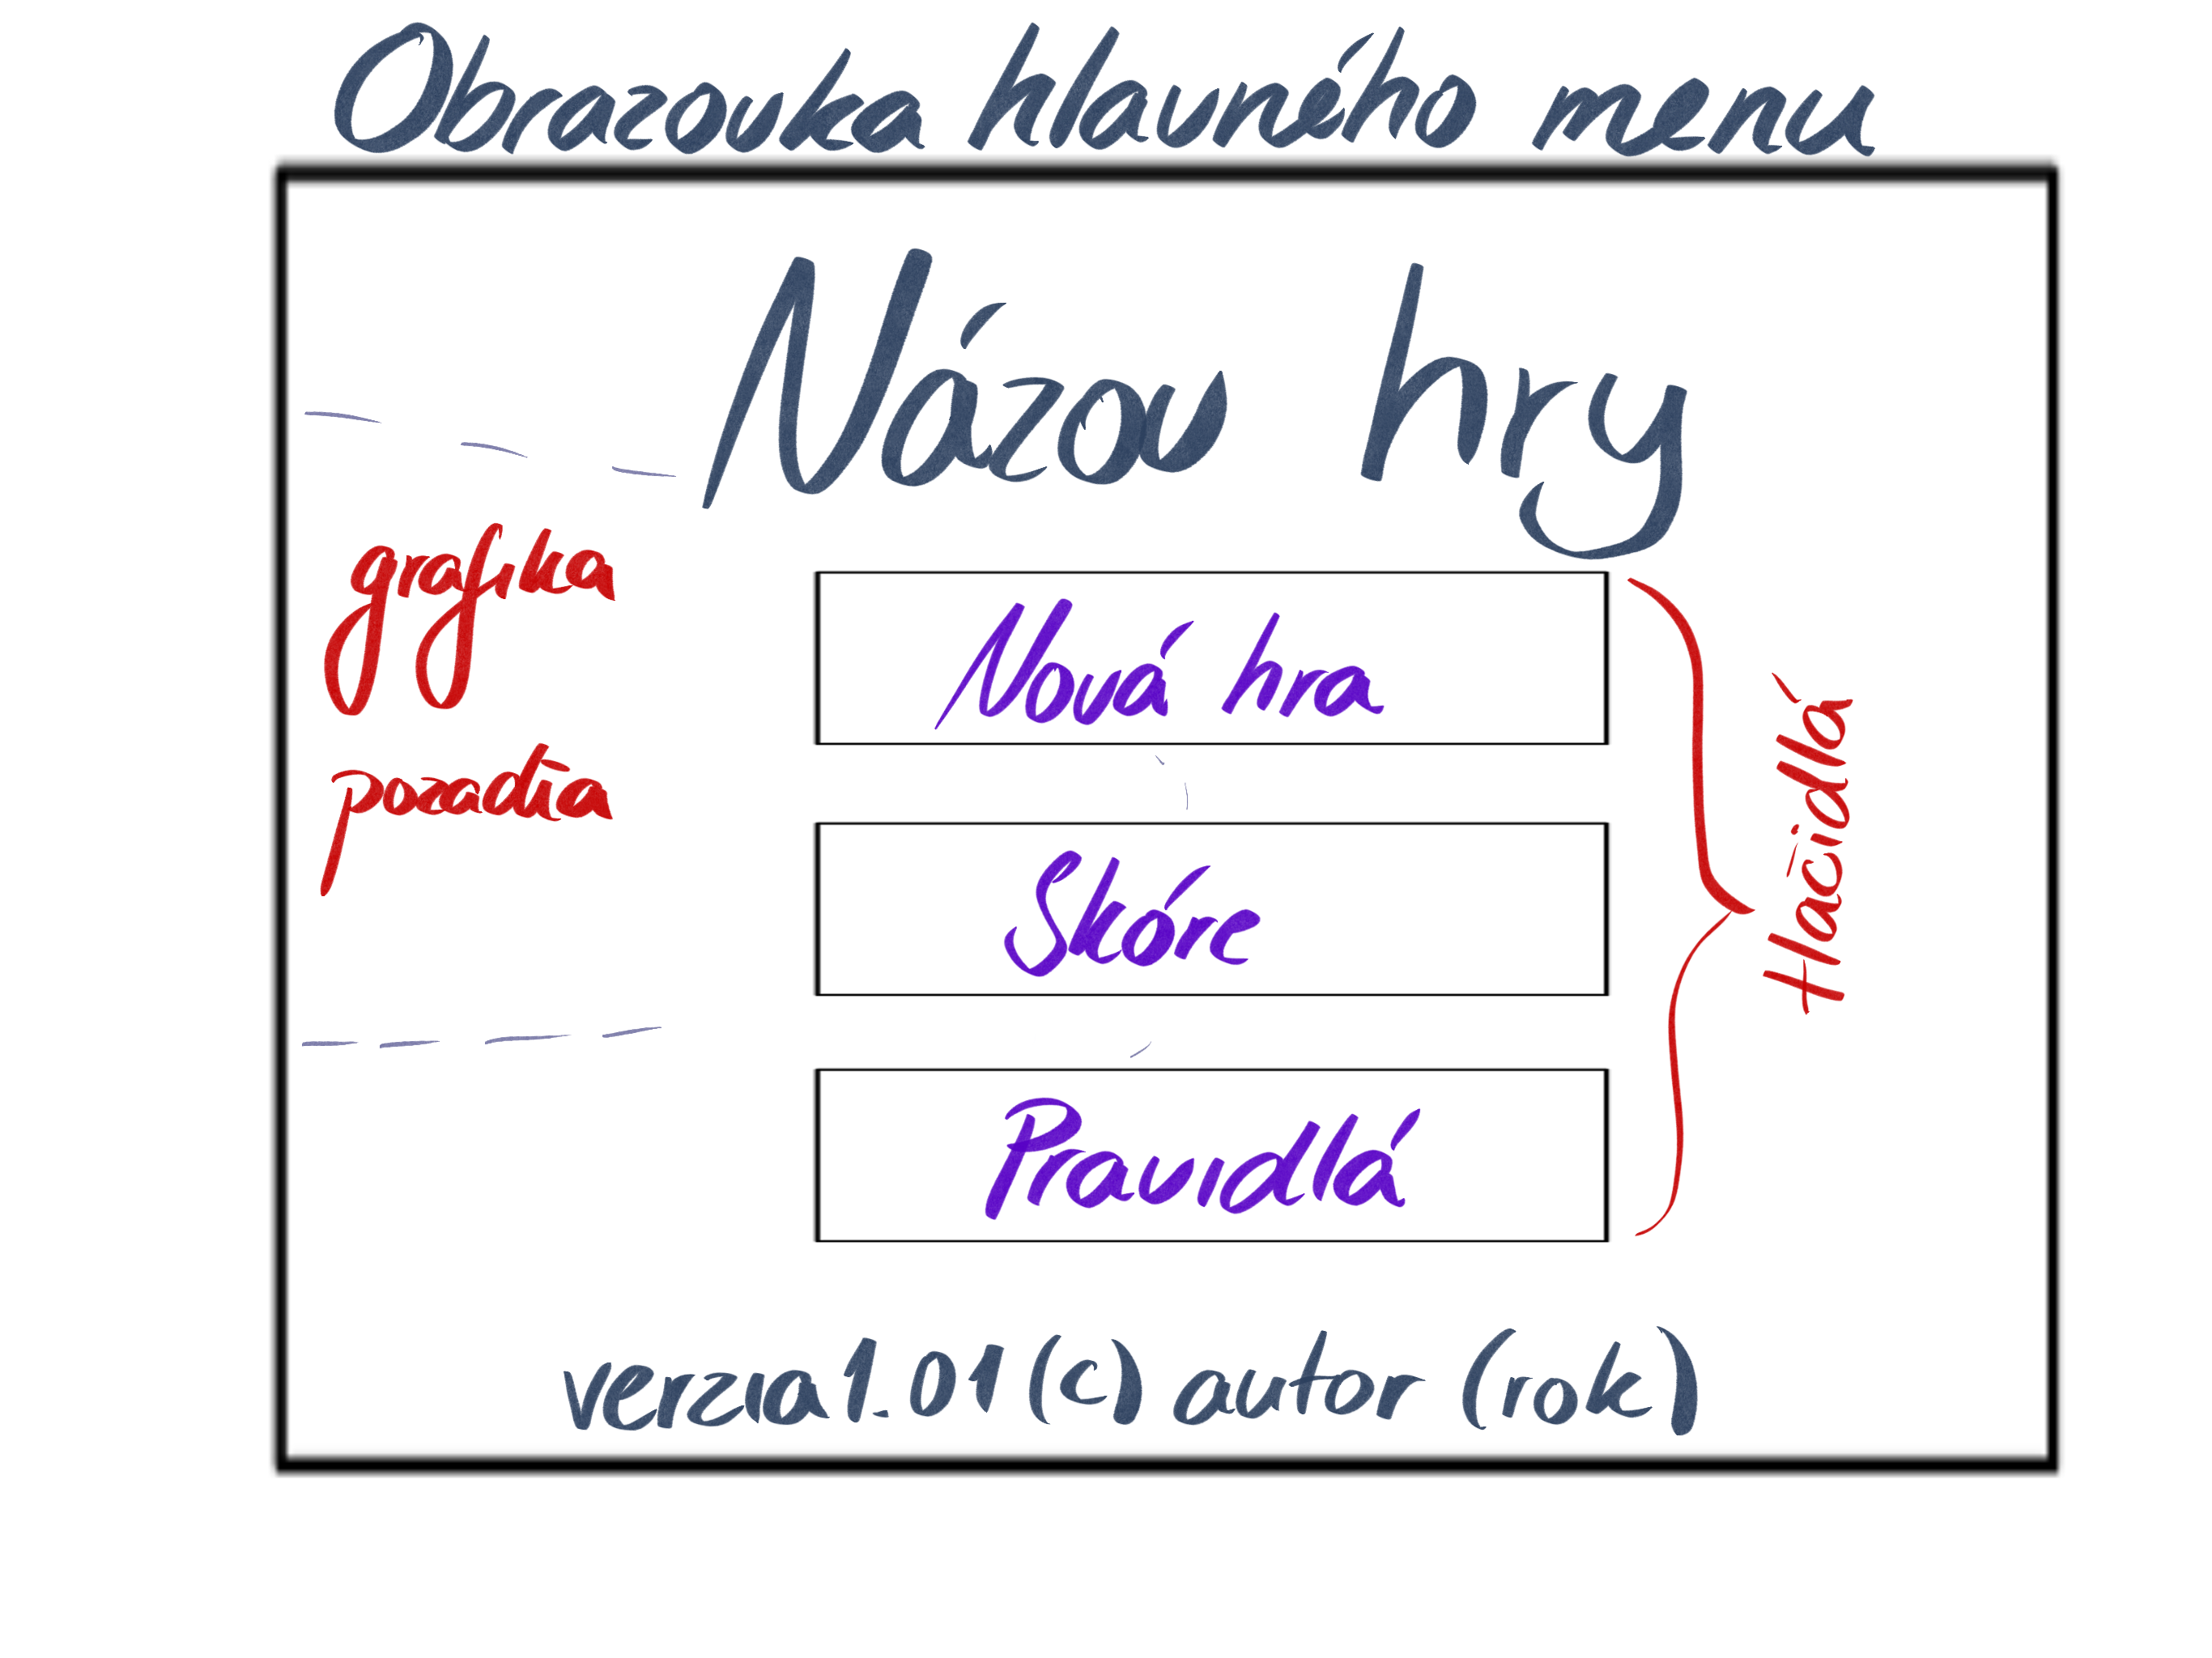 Obrazovka hlavného menu
Názov hry
grafika
pozadia
Nová hra
Skóre
Pravidlá
Hlačidlá
verzia 1.01 (c) autor (rok)